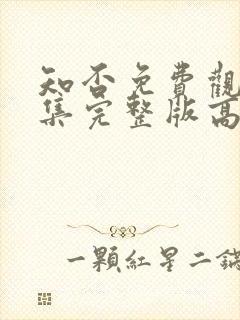 知否免費觀
集完整版高
一顆紅星二鍋